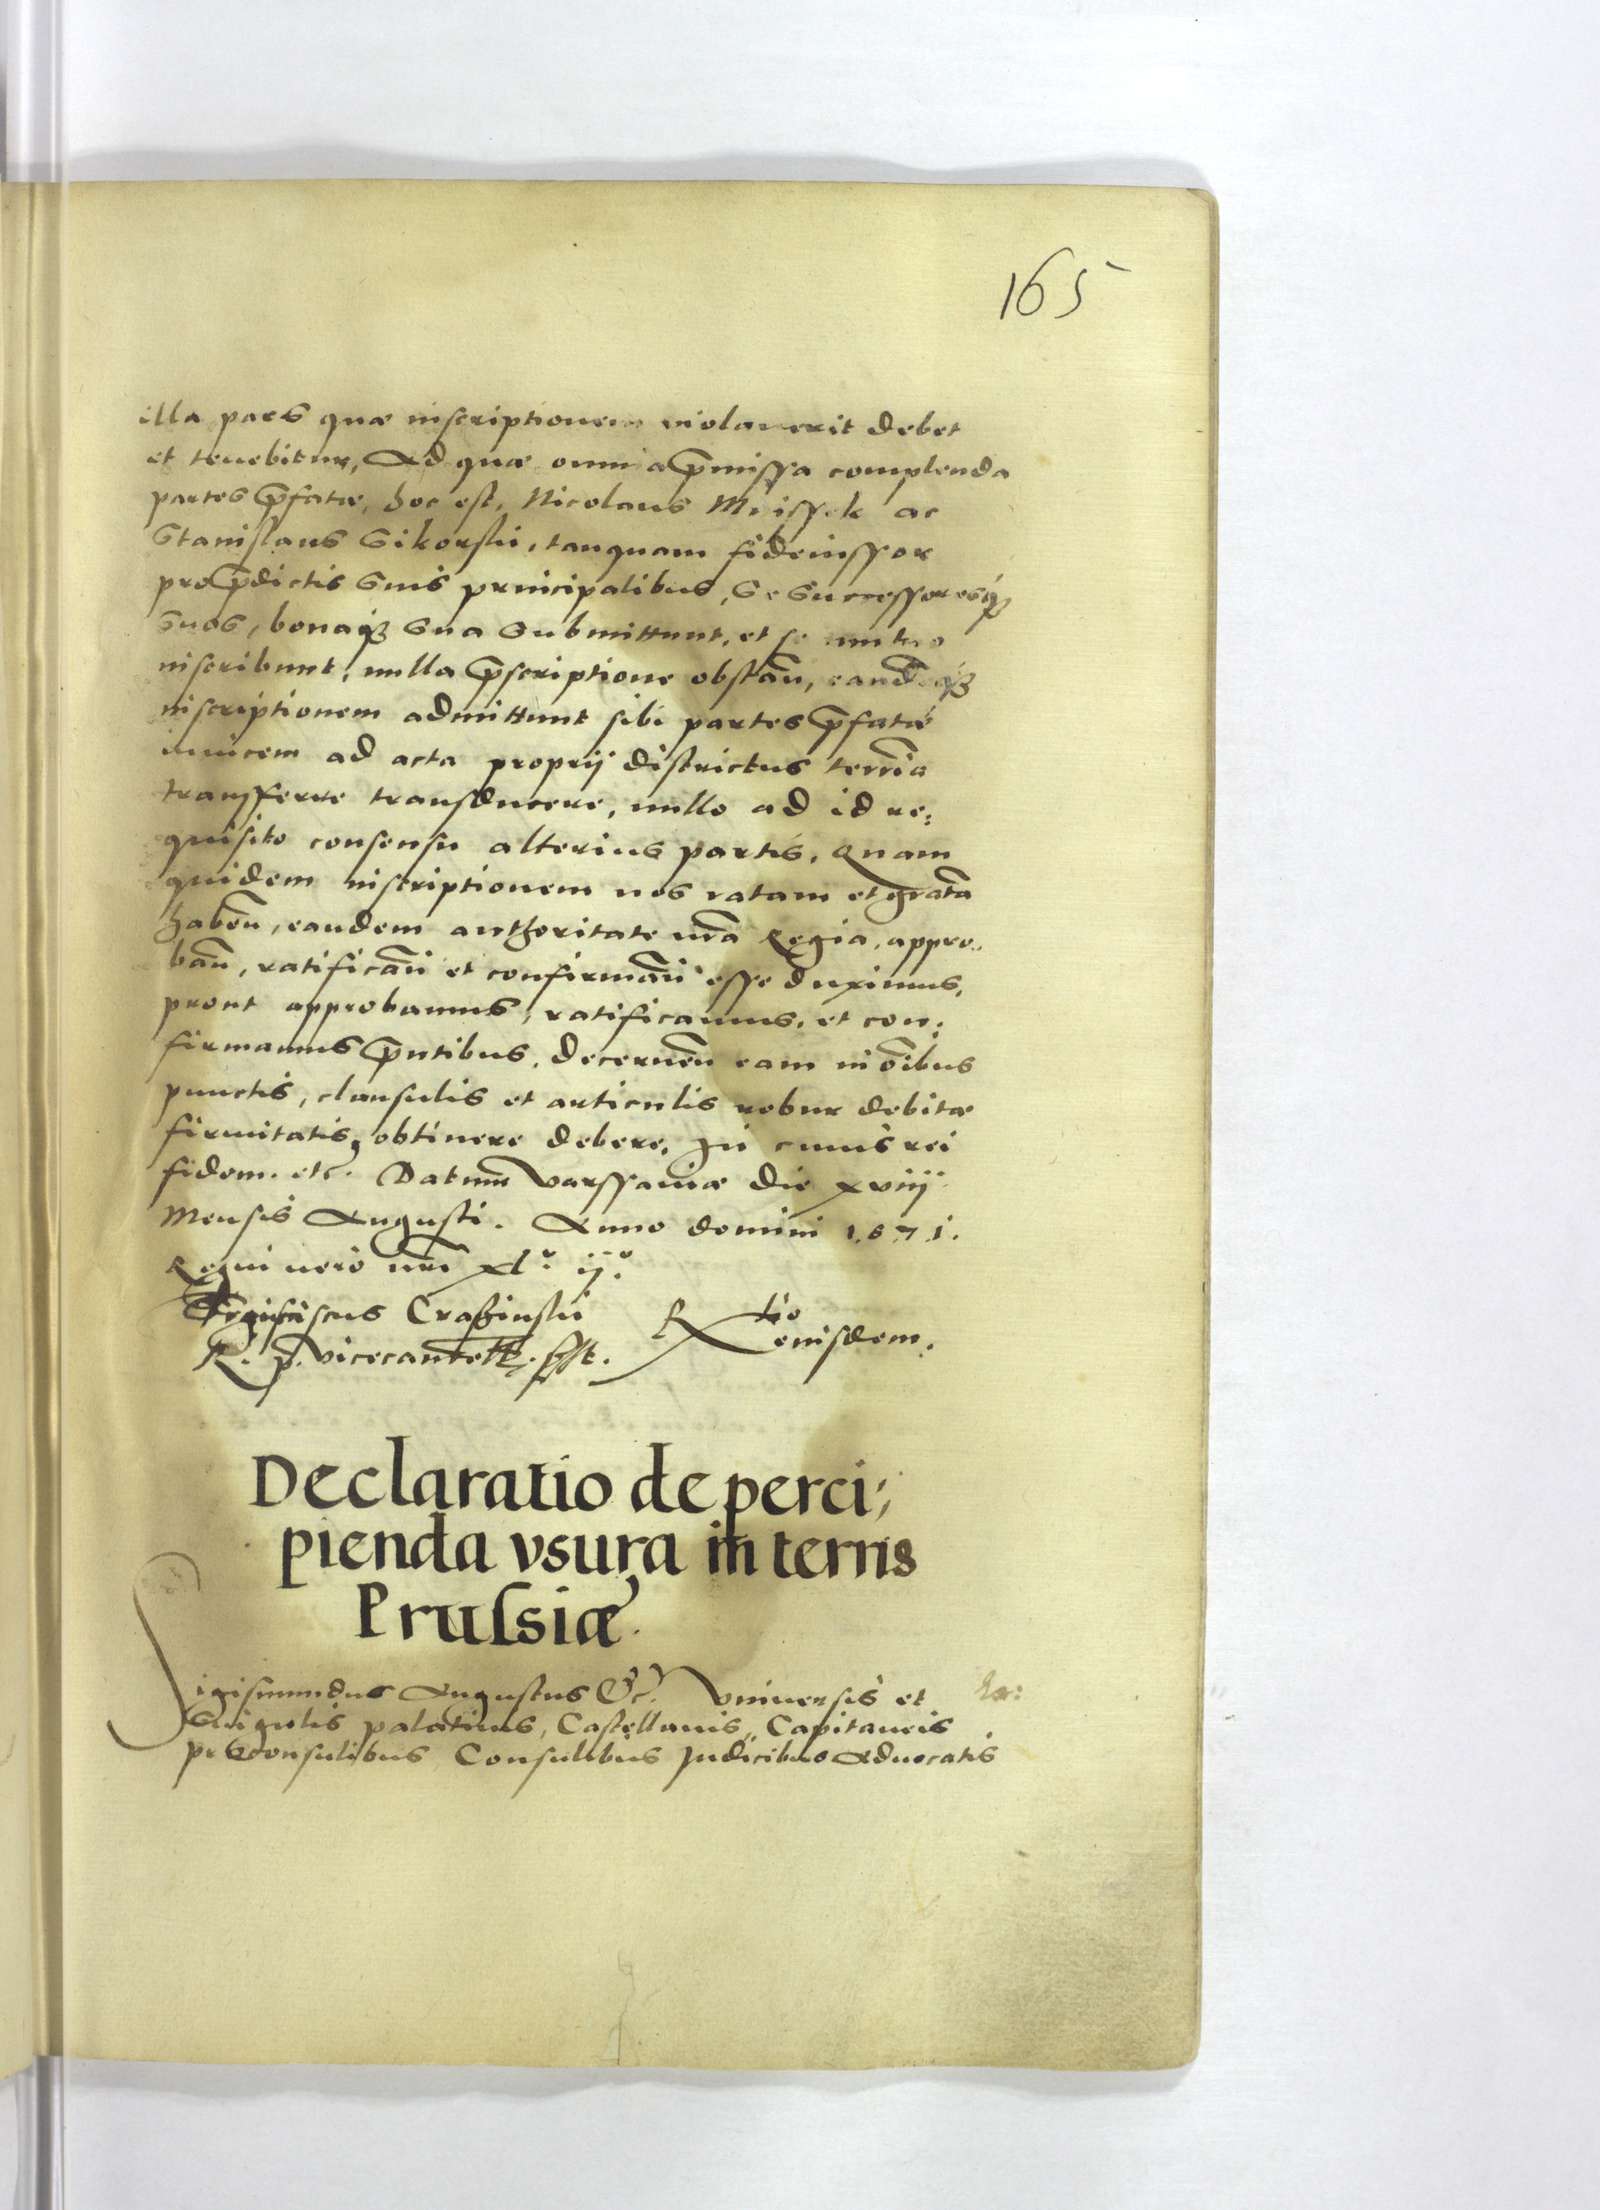 165
illa pars quæ inscriptionem violauerit debet
et tenebitur, Ad quæ omnia p̄missa complenda
partes p̄fatæ, hoc est, Nicolaus ac
Stanislaus Sikorskii, tanquam fideiussor
pro p̄dictis suis principalibus, se successoresq́
suos, bonaq́ sua submittunt, et se mutuo
inscribunt, nulla p̄scriptione obstān, eandēq́
inscriptionem admittunt sibi partes p̄fatæ
inuicem ad acta proprij districtus terrīa
transferre transducere, nullo ad id re:
quisito consensu alterius partis, Quam
quidem inscriptionem nos ratam et gratā
habēn, eandem authoritate nrā Regia, appro:
bān, ratificān et confirmān esse duximus,
prout approbamus, ratificamus, et con:
firmamus p̄ntibus, decernēn eam in oībus
punctis, clausulis et articulis robur debitæ
firmitatis, obtinere debere, In cuius rei
fidem. etc. Datum Varssauiæ die xviij
Mensis Augusti. Anno domini 1571.
Regni vero nrī xlº ijº
Franciscus Crasinskii
R. p. Vicecancell. sst. Rtio eiusdem.
Declaratio de perci;
pienda vsura in terris
Prussiæ.
Sigismundus Augustus &c. Vniuersis et
Singulis palatinis, Castellanis, Capitaneis
proconsulibus Consulibus Judicibus Aduocatis